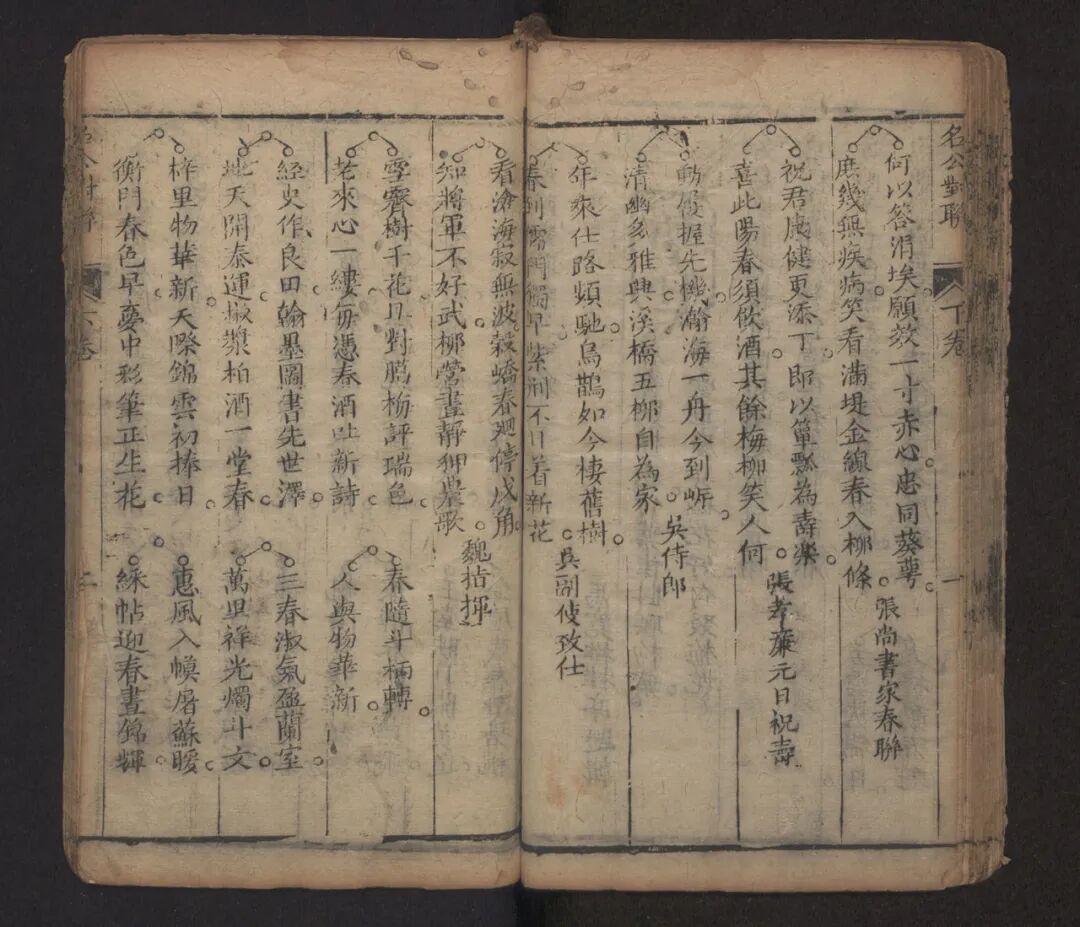 名公對聯 下卷 一
何以答涓埃願效一寸赤心忠同葵萼
庶幾無疾病笑看滿堤金線春入柳條
張尚書家春聯
祝君康健更添丁即以簞瓢為壽樂
喜此陽春須飲酒其餘梅柳笑人何
張孝廉元日祝壽
動懷握先機瀚海一舟今到岍
清幽多雅興溪橋五柳自為家
吳侍郎
年來仕路頻馳烏鵲如今棲舊樹
春到 門獨早紫荊不日着新花
吳副使致仕
看滄海寂無波穀嶠春廻停戍角
知將軍不好武柳營晝靜狎農歌
魏指揮
雪霽樹千花且對鵬梅評瑞色
老來心一縷每憑春酒吐新詩
春隨斗柄轉
人與物華新
經史作良田翰墨圖書先世澤
地天開泰運椒漿柏酒一堂春
三春淑氣盈蘭室
萬里祥光燭斗文
梓里物華新天際錦雲初捧日
衡門春色早夢中彩筆正生花
惠風入幙屠蘇暖
綵帖迎春晝錦輝